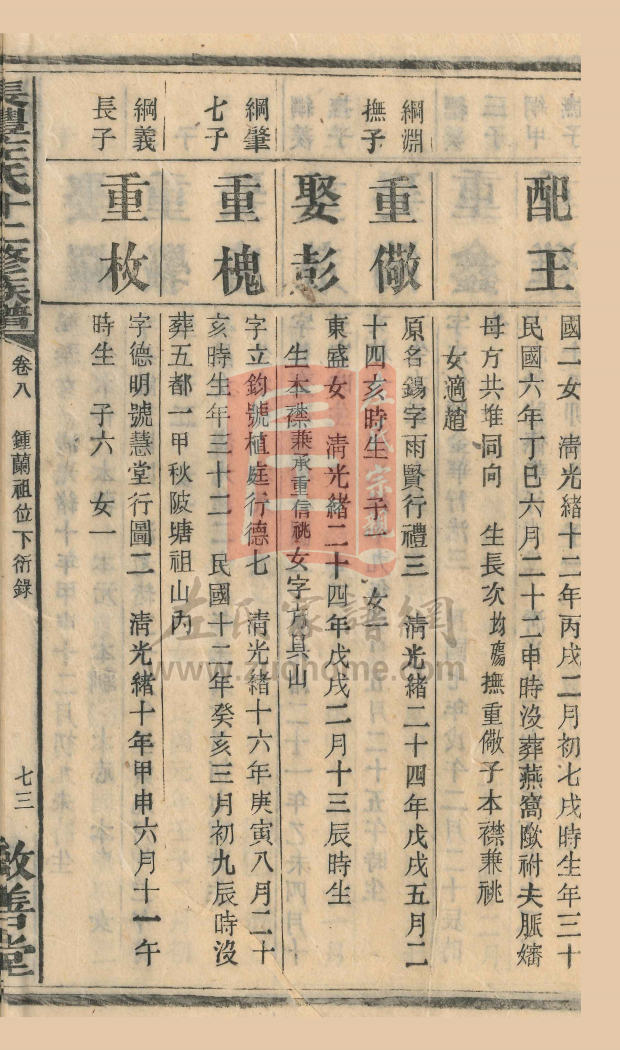 配王
國二女　淸光緒十二年丙戌二月初七戌時生年三十
民國六年丁巳六月二十二申時沒葬燕窩歘祔夫脈嬸
母方共堆同向　生長次均殤撫重儆子本襟兼祧
女適趙
綱淵
撫子
重儆
原名錫字雨賢行禮三　淸光緒二十四年戊戌五月二
十四亥時生　子一　女二
娶彭
東盛女　淸光緒二十四年戊戌二月十三辰時生
生本襟兼承重信祧女字具山
綱肇
七子
重槐
字立鈞號植庭行德七　淸光緒十六年庚寅八月二十
亥時生年三十二　民國十二年癸亥三月初九辰時沒
葬五都一甲秋陂塘祖山內
綱義
長子
重枚
字德明號慧堂行圖二　淸光緒十年甲申六月十一午
時生　子六　女一
長豐左氏十二修族譜
卷八　鍾蘭祖位下衍錄
七三
敬善堂
左氏家譜網
www.zuohome.com